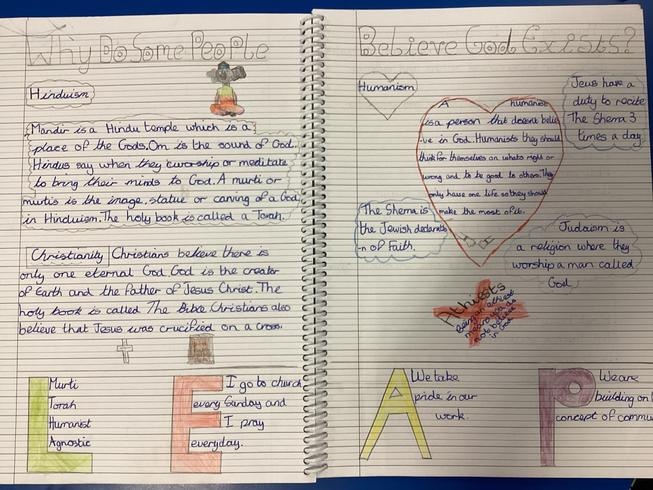 Why Do Some People
Believe God Exists?
Hinduism
Mandir is a Hindu temple which is a
place of the Gods. Om is the sound of God.
Hindus say when they worship or meditate
to bring their minds to God. A murti or
murtis is the image, statue or carving of a God
in Hinduism. The holy book is called a Torah.
Christianity Christians believe there is
only one eternal God God is the creator
of Earth and the Father of Jesus Christ. The
holy book is called The Bible Christians also
believe that Jesus was crucified on a cross.
L
Murti
Torah
Humanist
Agnostic
E
I go to church
every Sunday and
I pray
everyday.
Humanism
A humanist
is a person that doesnt belie
-ve in God. Humanists they should
think for themselves on whats right or
wrong and to be good to others. They
only have one life so they should
make the most of it.
Jews have a
duty to recite
The Shema 3
times a day
The Shema is
the Jewish declaratio
-n of Faith.
Judaism is
a religion where they
worship a man called
God
Athiests
Being an athiest
means you do
not believe
in God
A
We take
pride in our
work.
P
We are
building on
concept of commu